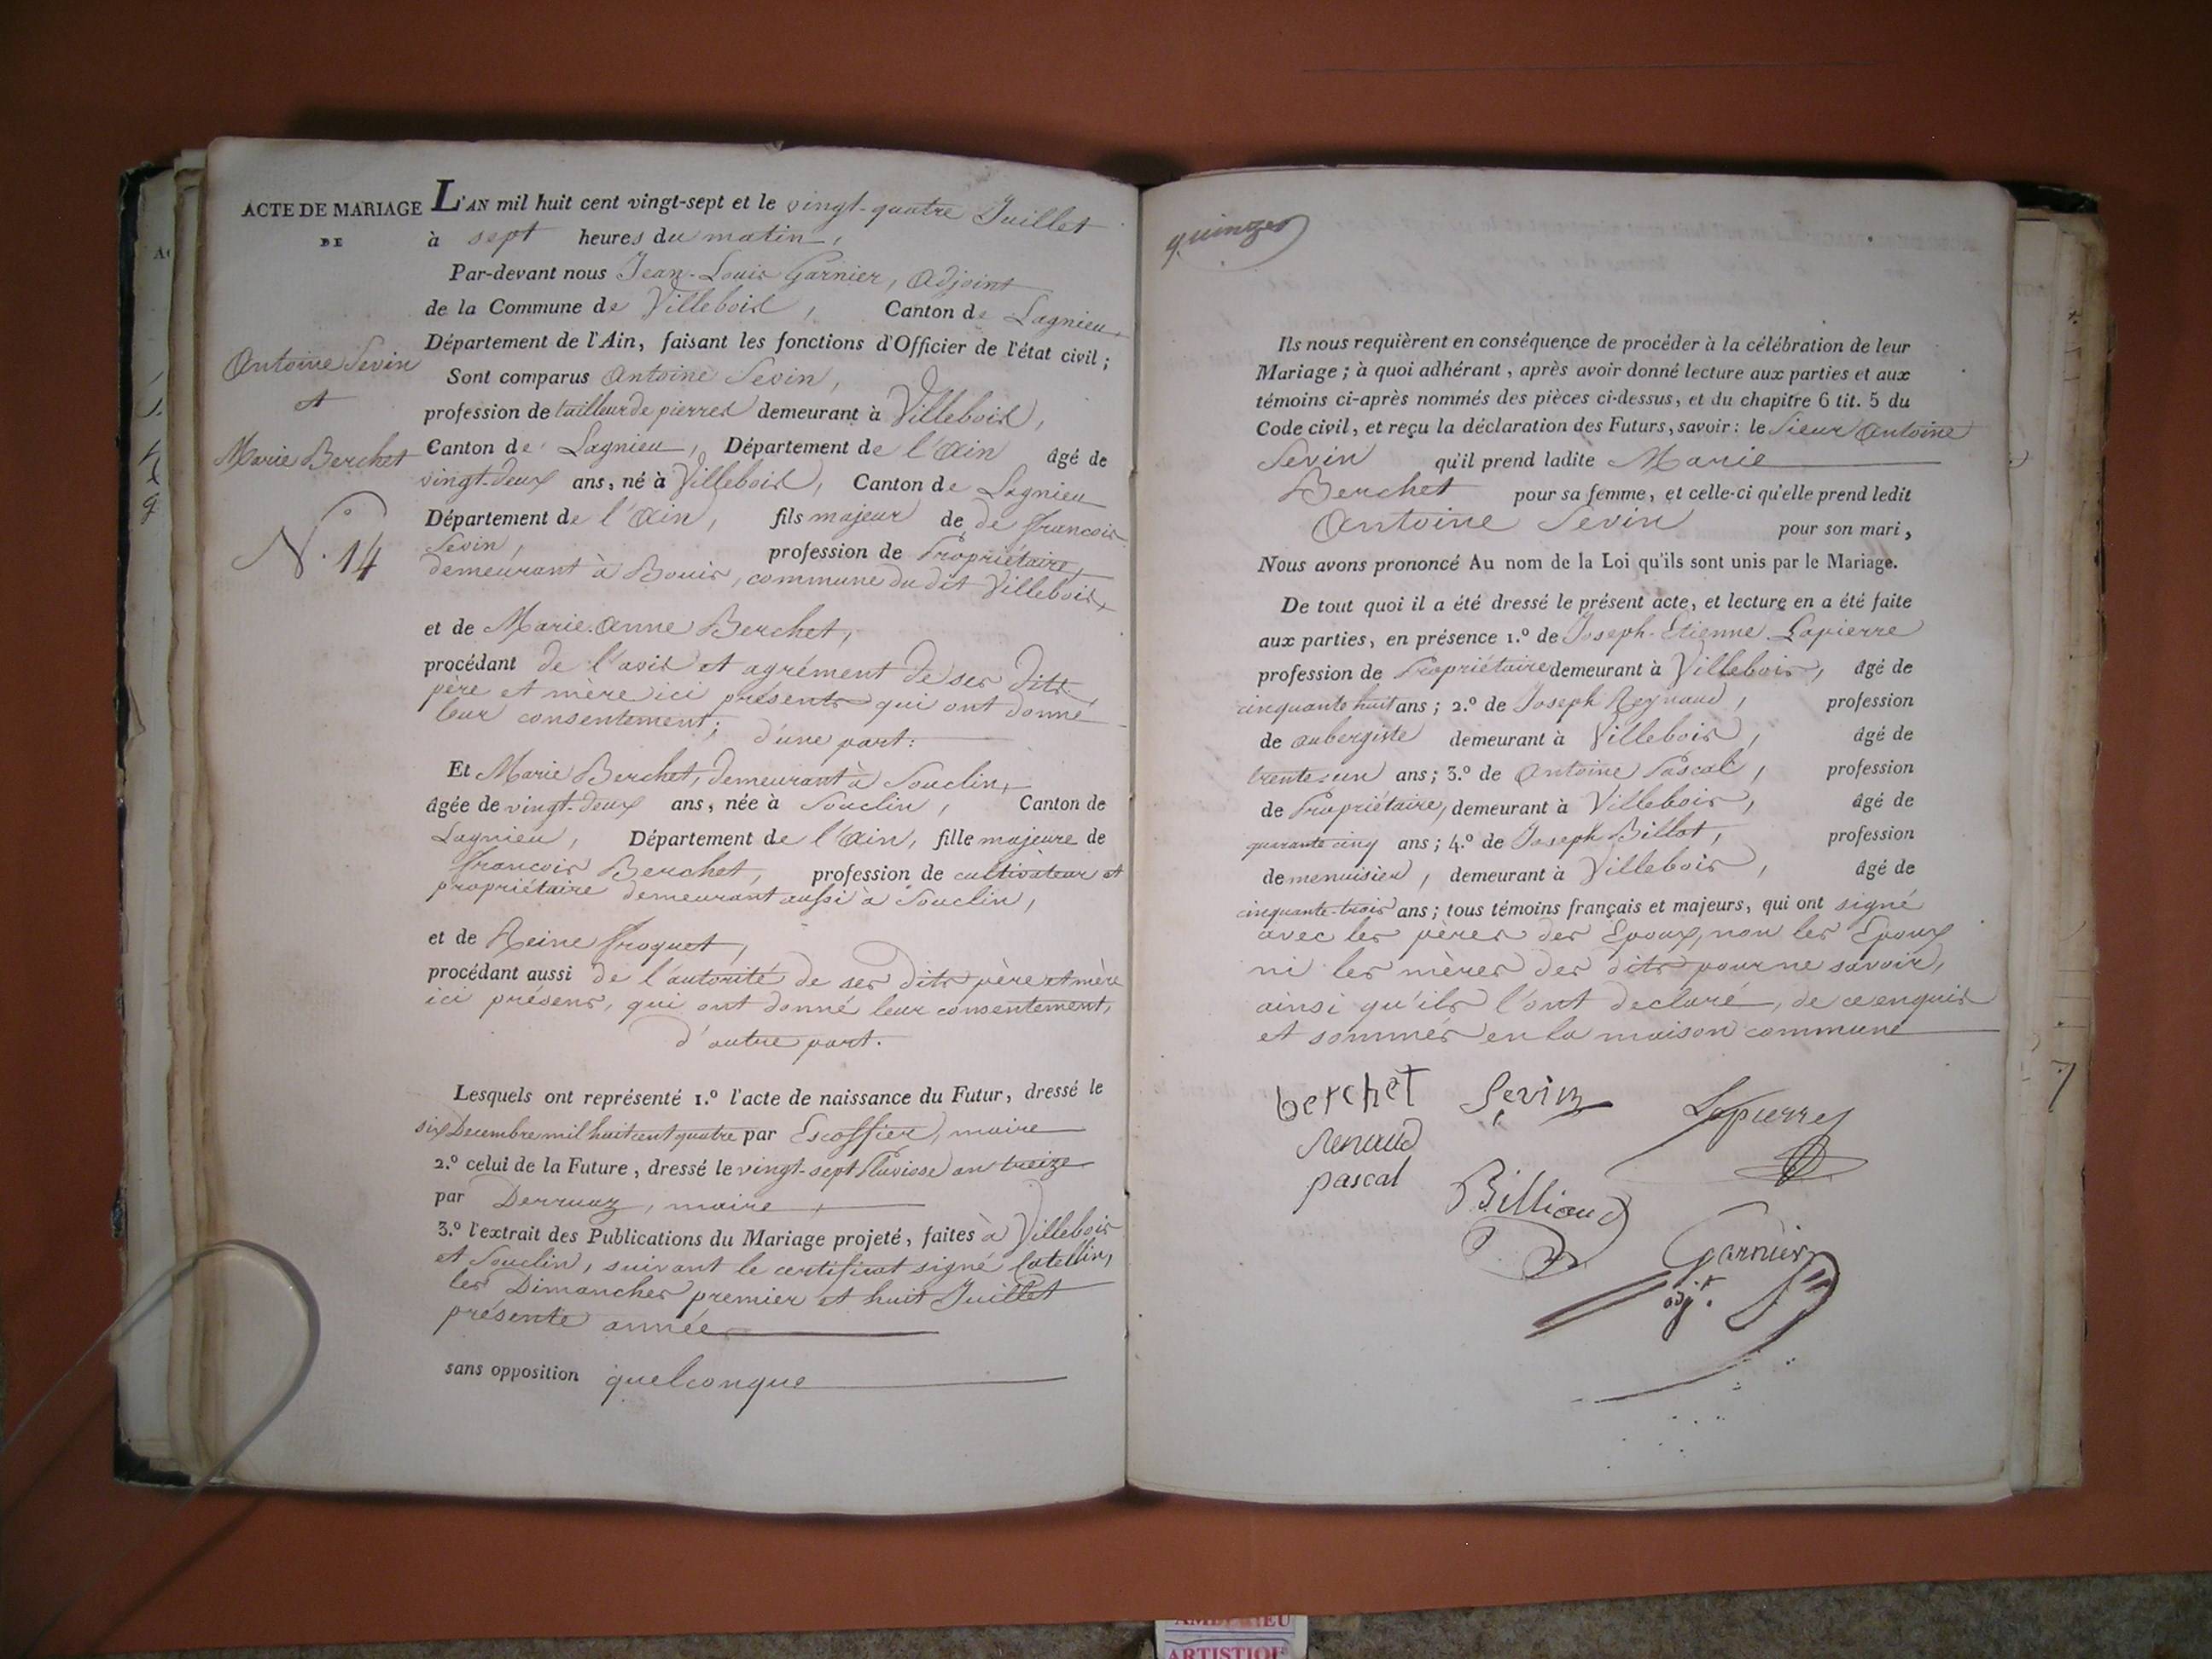 ACTE DE MARIAGE
DE
Antoine Sevin
et
Marie Berchet
N.o 14
L'AN mil huit cent vingt-sept et le vingt-quatre Juillet
à sept heures du matin,
Par-devant nous Jean-Louis Garnier, Adjoint
de la Commune de Villebois, Canton de Lagnieu,
Département de l'Ain, faisant les fonctions d'Officier de l'état civil;
Sont comparus Antoine Sevin,
profession de tailleur de pierres demeurant à Villebois,
Canton de Lagnieu, Département de l'Ain âgé de
vingt-deux ans, né à Villebois, Canton de Lagnieu
Département de l'Ain, fils majeur de de francois
Sevin, profession de Propriétaire,
demeurant à Bouis, commune du dit Villebois,
et de Marie-Anne Berchet,
procédant de l'avis et agrément de ses dits
père et mère ici présents qui ont donné
leur consentement; d'une part:
Et Marie Berchet, demeurant à Souclin,
âgée de vingt-deux ans, née à Souclin, Canton de
Lagnieu, Département de l'Ain, fille majeure de
francois Berchet, profession de cultivateur et
propriétaire demeurant aussi à Souclin,
et de Reine froquet,
procédant aussi de l'autorité de ses dits père et mère
ici présens, qui ont donné leur consentement,
d'autre part.
Lesquels ont représenté 1.º l'acte de naissance du Futur, dressé le
six Decembre mil huit cent quatre par Escoffier, maire
2.º celui de la Future, dressé le vingt-sept Pluviose an treize
par Derruaz, maire,
3.º l'extrait des Publications du Mariage projeté, faites à Villebois
et Souclin, suivant le certificat signé Catellin,
les Dimanches premier et huit Juillet
présente année
sans opposition quelconque
quinze
Ils nous requièrent en conséquence de procéder à la célébration de leur
Mariage; à quoi adhérant, après avoir donné lecture aux parties et aux
témoins ci-après nommés des pièces ci-dessus, et du chapitre 6 tit. 5 du
Code civil, et reçu la déclaration des Futurs, savoir: le Sieur Antoine
Sevin qu'il prend ladite Marie
Berchet pour sa femme, et celle-ci qu'elle prend ledit
Antoine Sevin pour son mari,
Nous avons prononcé Au nom de la Loi qu'ils sont unis par le Mariage.
De tout quoi il a été dressé le présent acte, et lecture en a été faite
aux parties, en présence 1.º de Joseph-Etienne Lapierre
profession de Propriétaire demeurant à Villebois, âgé de
cinquante huit ans; 2.º de Joseph Reynaud, profession
de aubergiste demeurant à Villebois, âgé de
trente-un ans; 3.º de Antoine Pascal, profession
de Propriétaire, demeurant à Villebois, âgé de
quarante cinq ans; 4.º de Joseph Billot, profession
de menuisier, demeurant à Villebois, âgé de
cinquante-trois ans; tous témoins français et majeurs, qui ont signé
avec les pères des Epoux, non les Epoux
ni les mères des dits pour ne savoir,
ainsi qu'ils l'ont declaré, de ce enquis
et sommés en la maison commune
berchet Sevin Lapierre
renaud
pascal
Billiaud
Garnier
adj.t
7
ARTISTIQUE